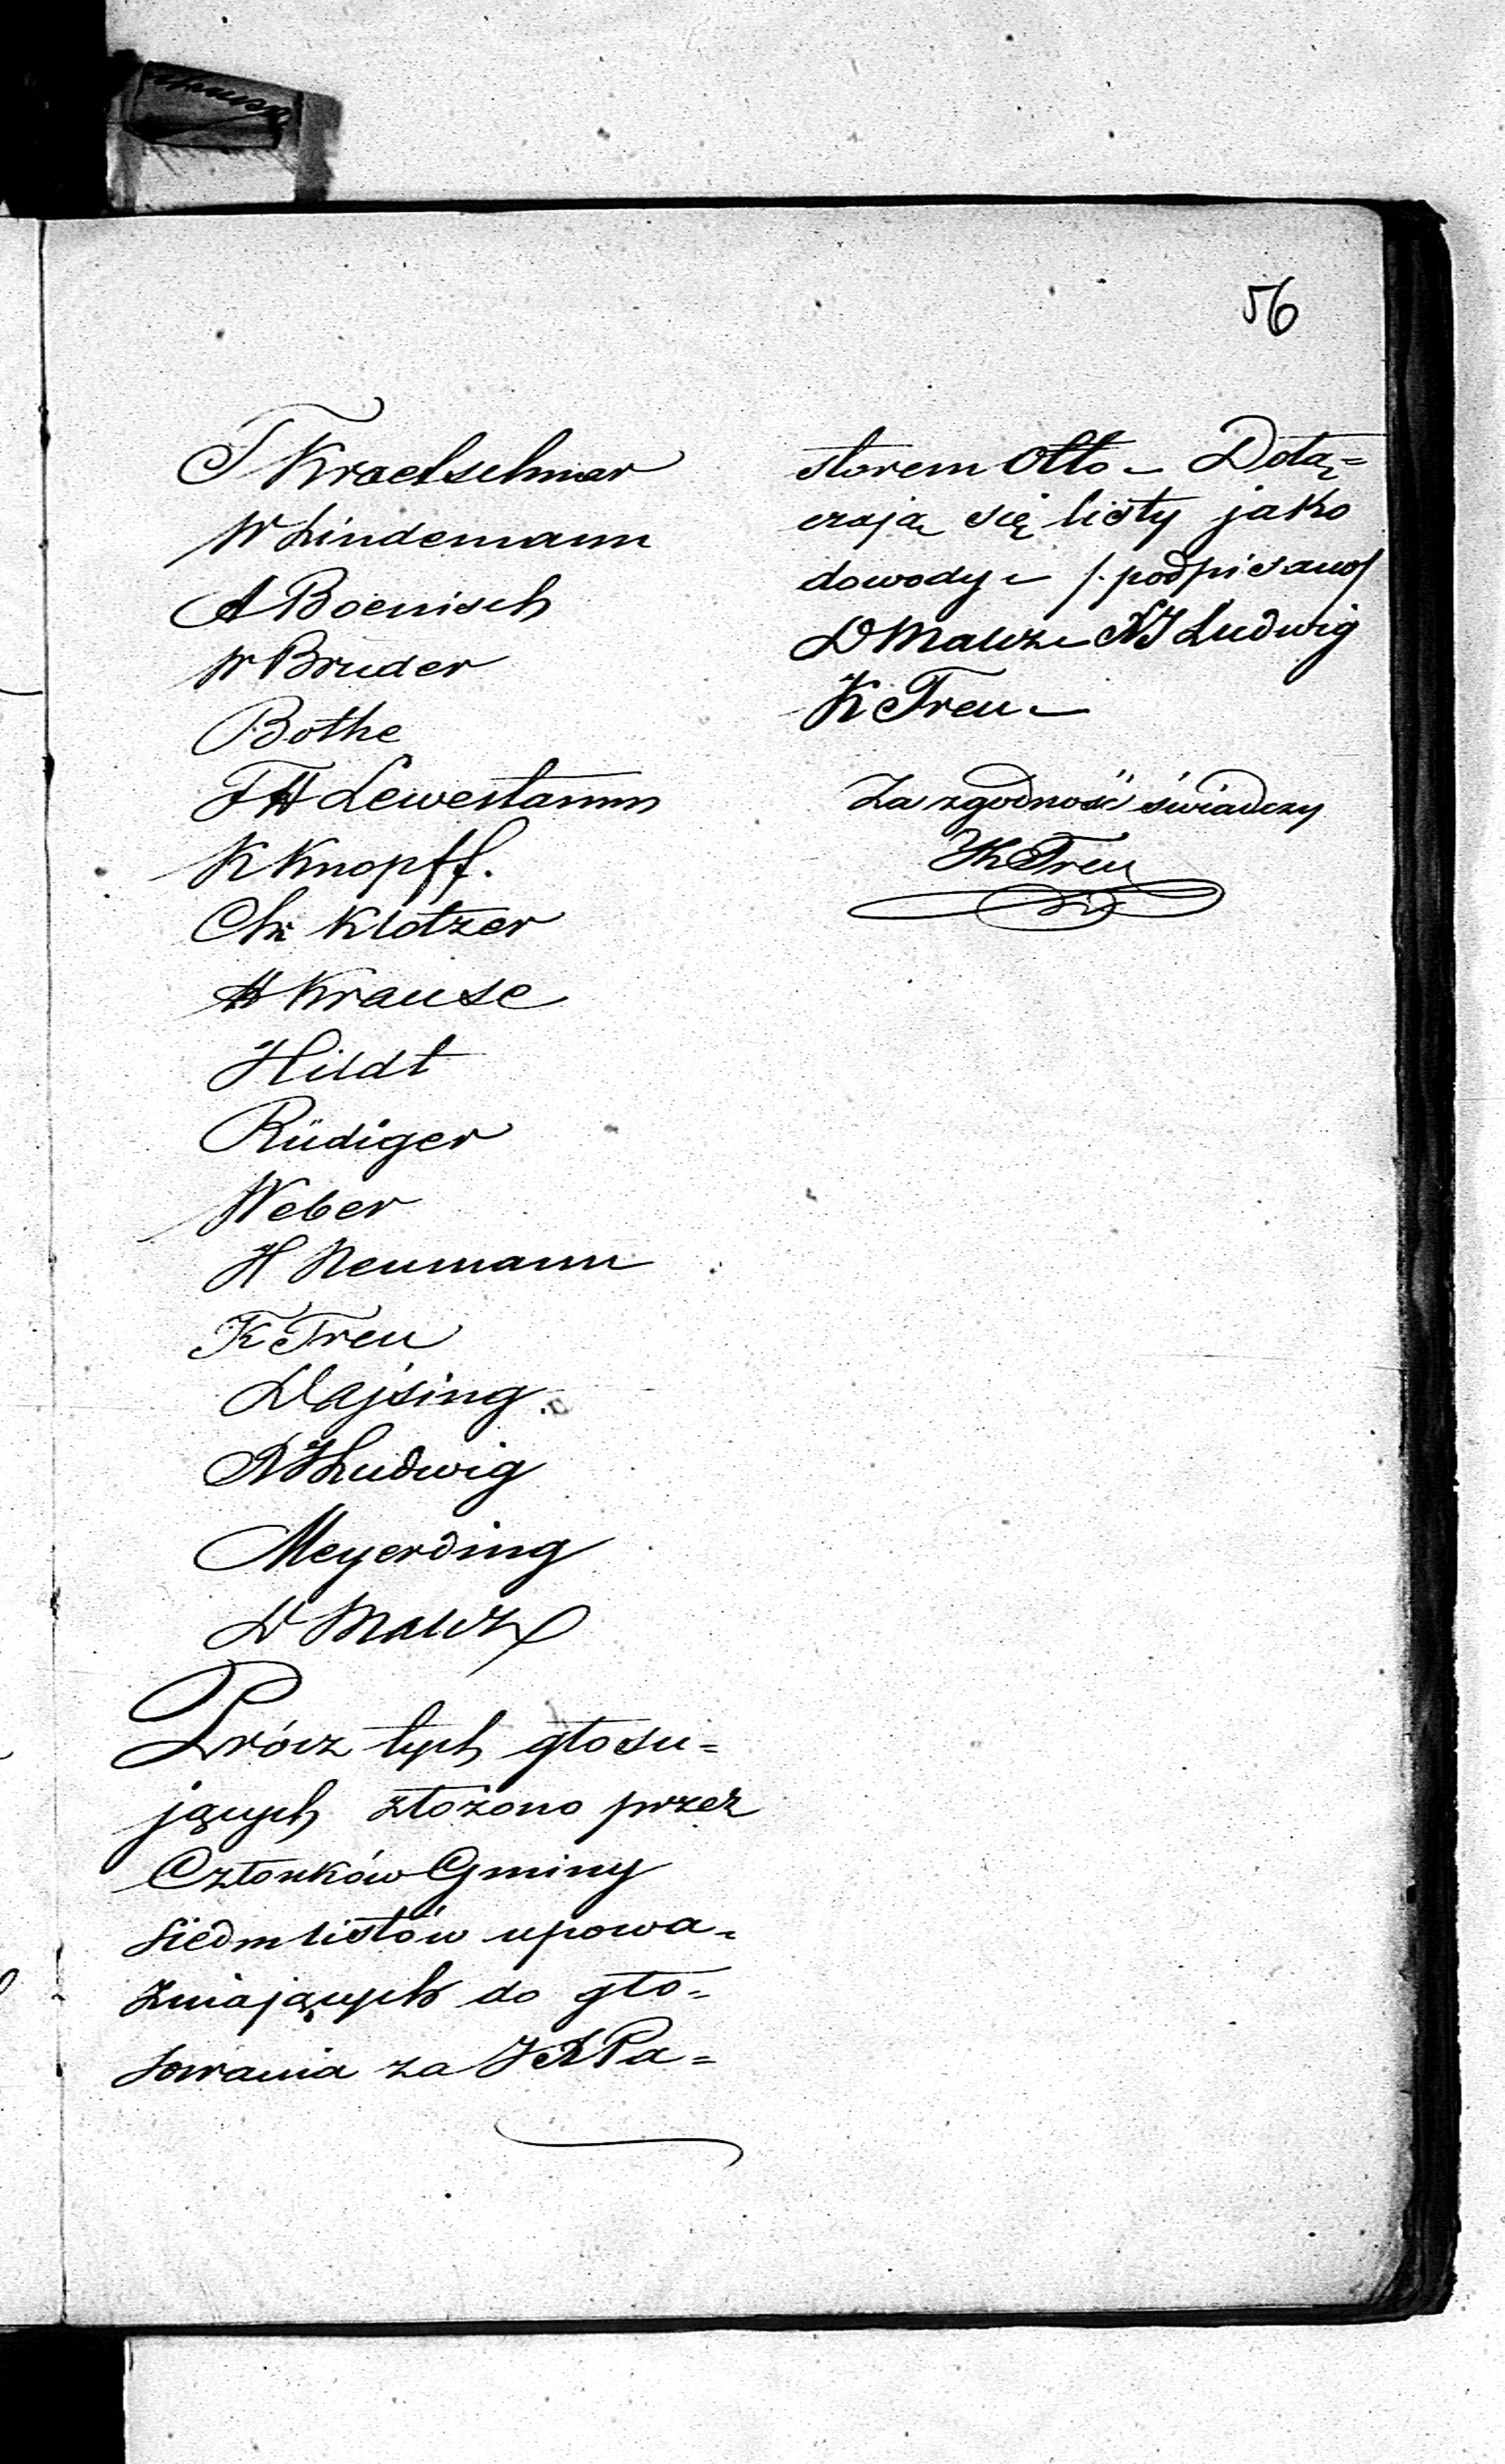 56
T Kraetschmar
W Lindemann
A Boenisch
W Bruder
Bothe
F H Lewestamm
K Knopff.
Chr Klotzer
H Krause
Hildt
Rüdiger
Weber
H Neumann
K Treu
Dajsing.
A J Ludwig
Meyerding
D Mauz
Prócz tych głosu=
jących złożono przez
Członków Gminy
siedm listów upowa-
żniających do gło-
sowania za J X Pa=
storem Otto – Dołą=
czają się listy jako
dowody – /. podpisano/
D Mauz – A J Ludwig
K Treu –
Za zgodność świadczy
K Treu